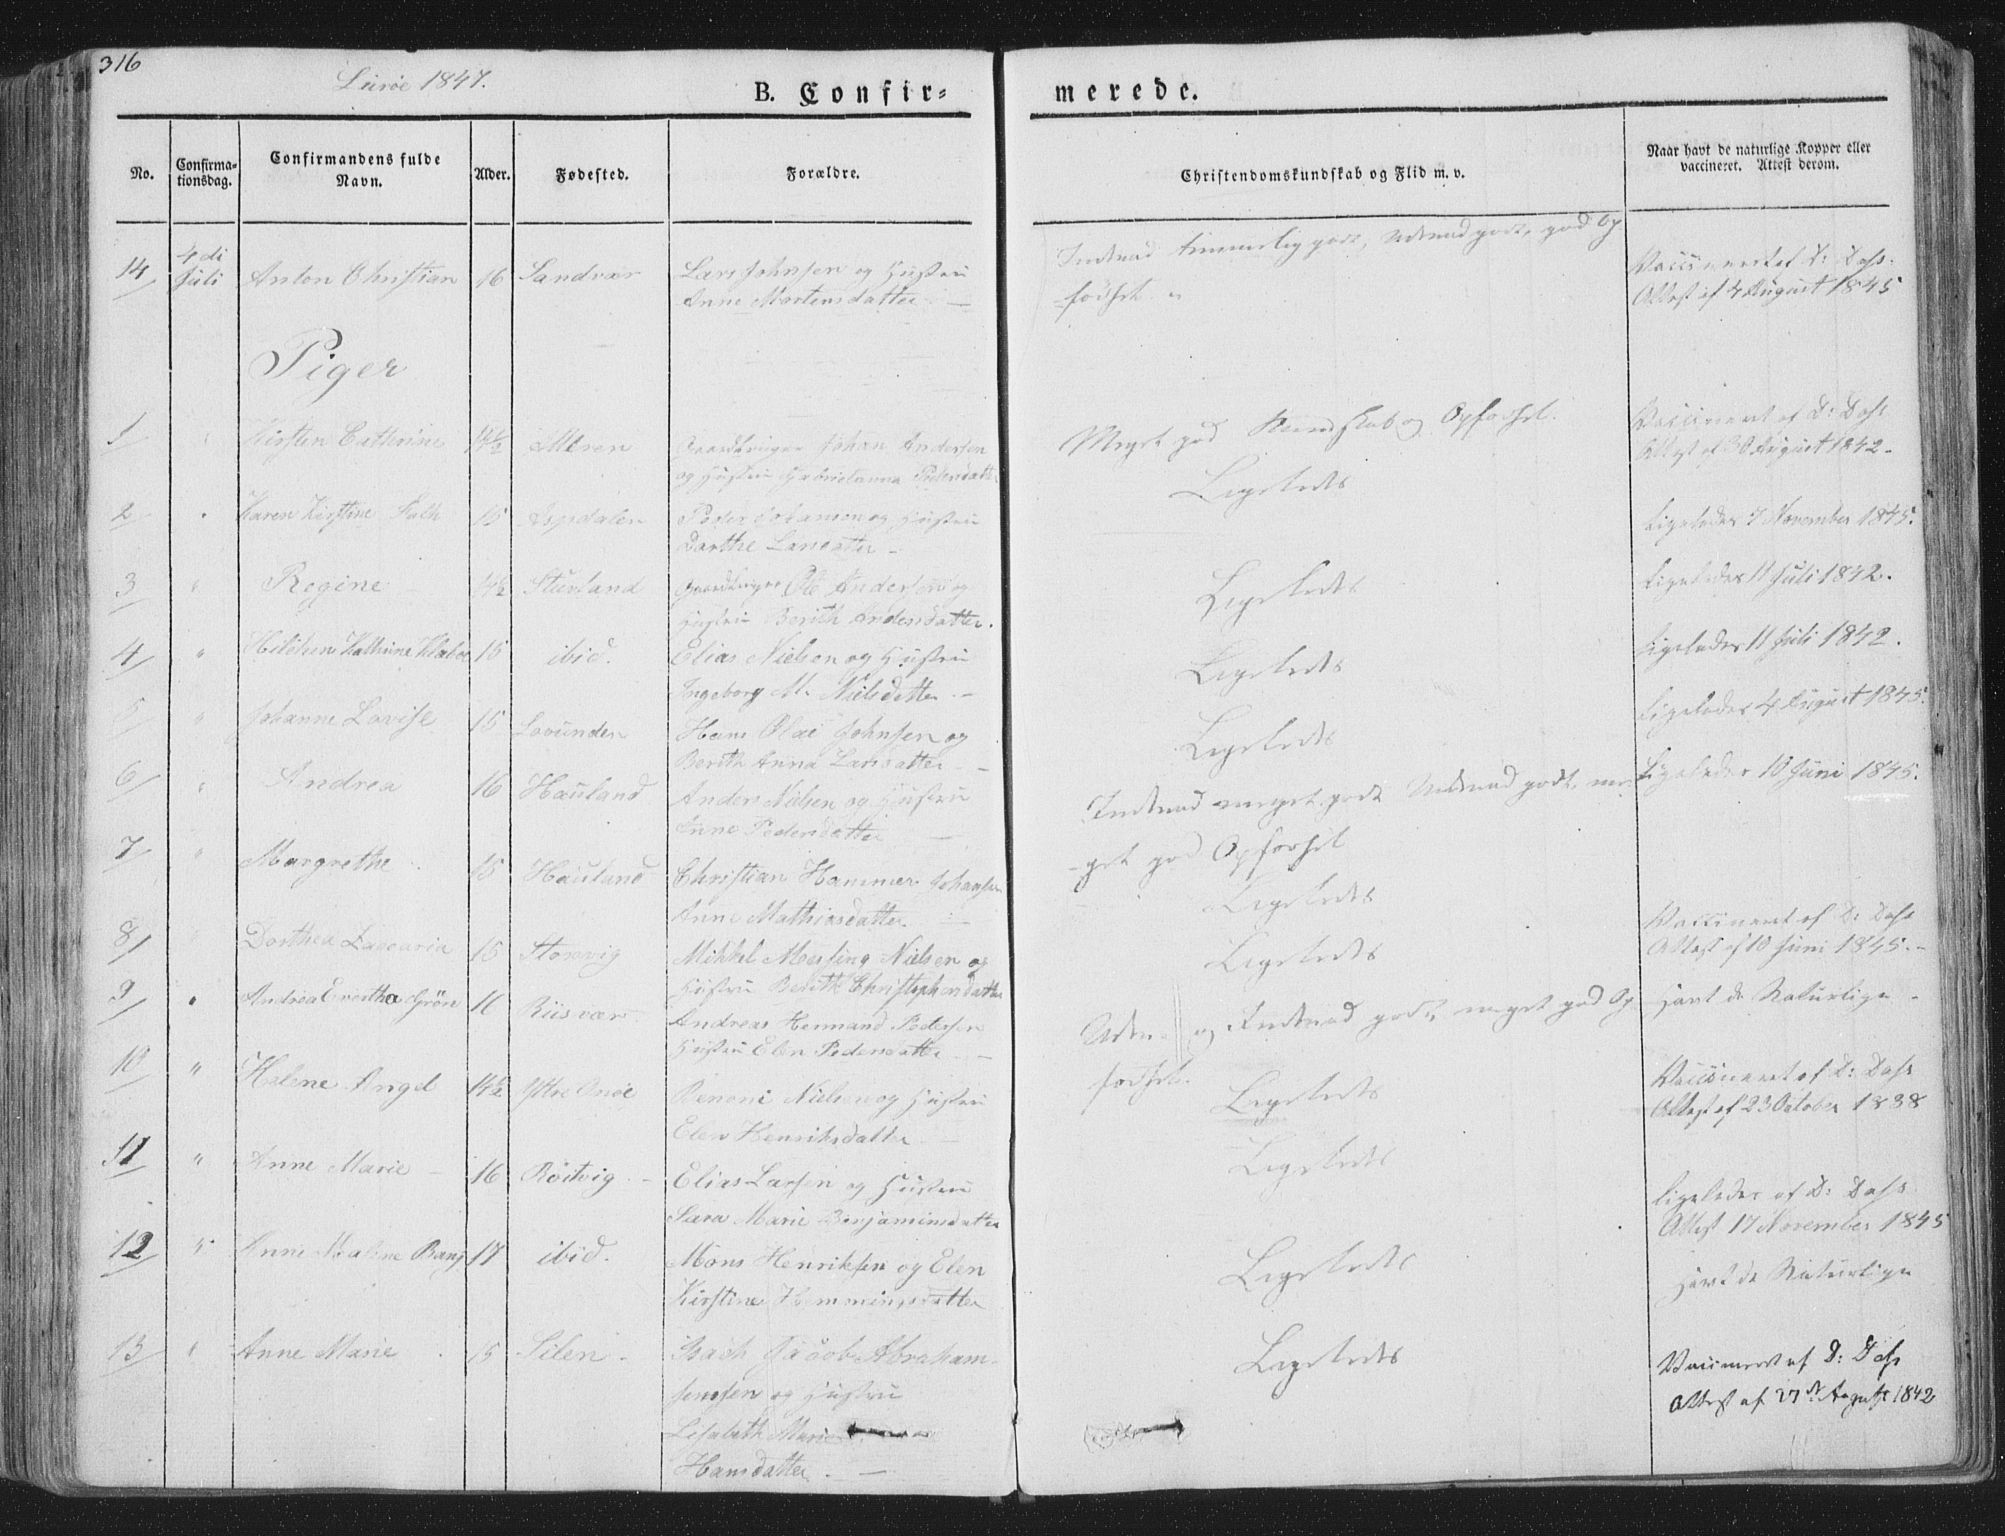 316
Lurøe 1847.
B. Confir=
merede.
No.
Confirma-
tionsdag.
Confirmandens fulde
Navn.
Alder.
Fødested.
Forældre.
Christendomskundskab og Flid m. v.
Naar havt de naturlige Kopper eller
vaccineret. Attest derom.
14 4 di Juli Anton Christian 16 Sandvær Lars Johnsen og Hustru
Anne Mortensdatter
godt, Udenad godt, god Op
førsel
Vaccineret af D: Dahs
Attest af 4 August 1845
Piger
1 Kirsten Cathrine 14½ Gaardbruger Johan Andersen
og Hustru Pedersdatter
Meget god Kundskab og Opførsel.
Vaccineret af D: Dahs
Attest af 30 August 1842
2 Karen Kirstine 15 Peder Johansen og Hustru
Dorthe Larsdatter
Ligeledes
Ligeledes 7 November 1845.
3 Regine 14½ Stuvland Gaardbruger Ole Andersen og
Hustru Berith Andersdatter.
Ligeledes
Ligeledes 11 Juli 1842.
4 Kathrine 15 ibid. Elias Nielsen og Hustru
Ingeborg M. Nielsdatter
Ligeledes
Ligeledes 11 Juli 1842.
5 Johanne Lovise 15 Lovunden Hans Olai Johnsen og
Berith Anna Larsdatter
Ligeledes
Ligeledes 4 August 1845.
6 Andrea 16 Hauland Anders Nielsen og Hustru
Anne Pedersdatter
Indenad meget godt Udenad godt, me-
get god Opførsel
Ligeledes 10 Juni 1845.
7 Margrethe 15 Hauland Christian Hammer Johansen
Anne Mathiasdatter
Ligeledes
Vaccineret af D: Dahs
Attest af 10 Juni 1845.
8 Dorthea Zacaria 15 Storvig Mikkel Nielsen og
Hustru Berith Christophersdatter
Ligeledes
Havt de Naturlige
9 Andrea Evertha Grön 16 Riisvær Andreas Pedersen
Hustru Elen Pedersdatter
Uden- og Indenad godt, meget god Op
førsel.
10 Helene Angel 14½ Ytre Onöe Benoni Nielsen og Hustru
Elen Henriksdatter
Ligeledes
Vaccineret af D: Dahs
Attest af 23 October 1838
11 Anne Marie 16 Röitvig Elias Larsen og Hustru
Sara Marie Benjaminsdatter
Ligeledes
Ligeledes af D: Dahs
Attest 17 November 1845
12 Anne Maline Bang 17 ibid. Mons Henriksen og Elen
Kirstine Hemmingsdatter
Ligeledes
Havt de Naturlige
13 Anne Marie 15 Selen Isach Jacob Abraham-
sensen og Hustru
Lisabeth Marie
Hansdatter.
Ligeledes
Vaccineret af D: Dahs
Attest af 27de August 1842